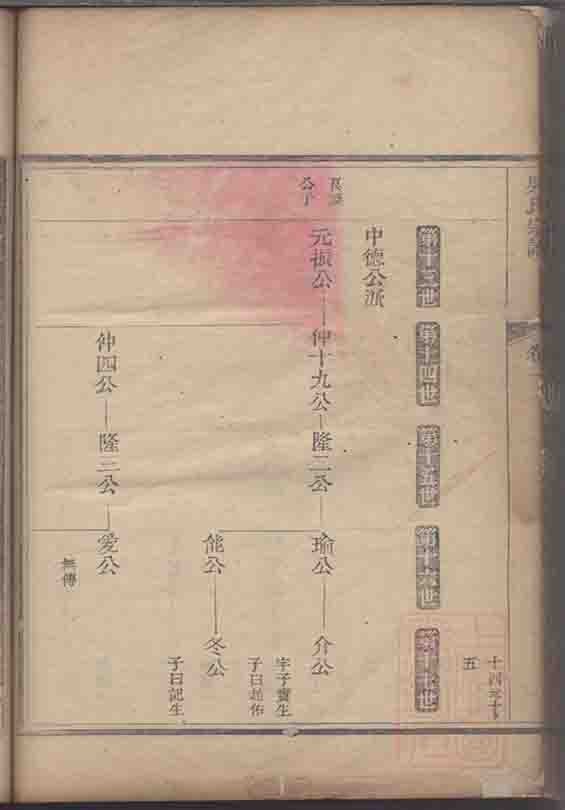 氏宗譜
卷
五
第十三世
第十四世
第十五世
第十六世
第十七世
中德公派
公子
元振公
仲十九公
隆二公
瑜公
介公
字子寶生
子曰起佑
能公
冬公
子曰記生
仲四公
隆三公
愛公
無傳